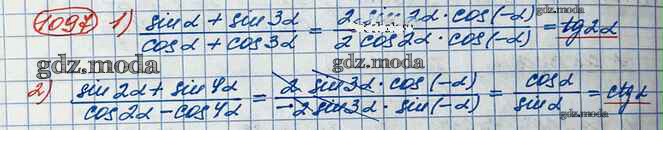 1097 1) sinα + sin3α / cosα + cos3α = 2 sin2α · cos(-α) / 2 cos2α · cos(-α) = tg2α
gdz.moda gdz.moda gdz.moda
2) sin2α + sin4α / cos2α - cos4α = 2 sin3α · cos(-α) / -2 sin3α · sin(-α) = cosα / sinα = ctgα
gdz.moda gdz.moda gdz.moda